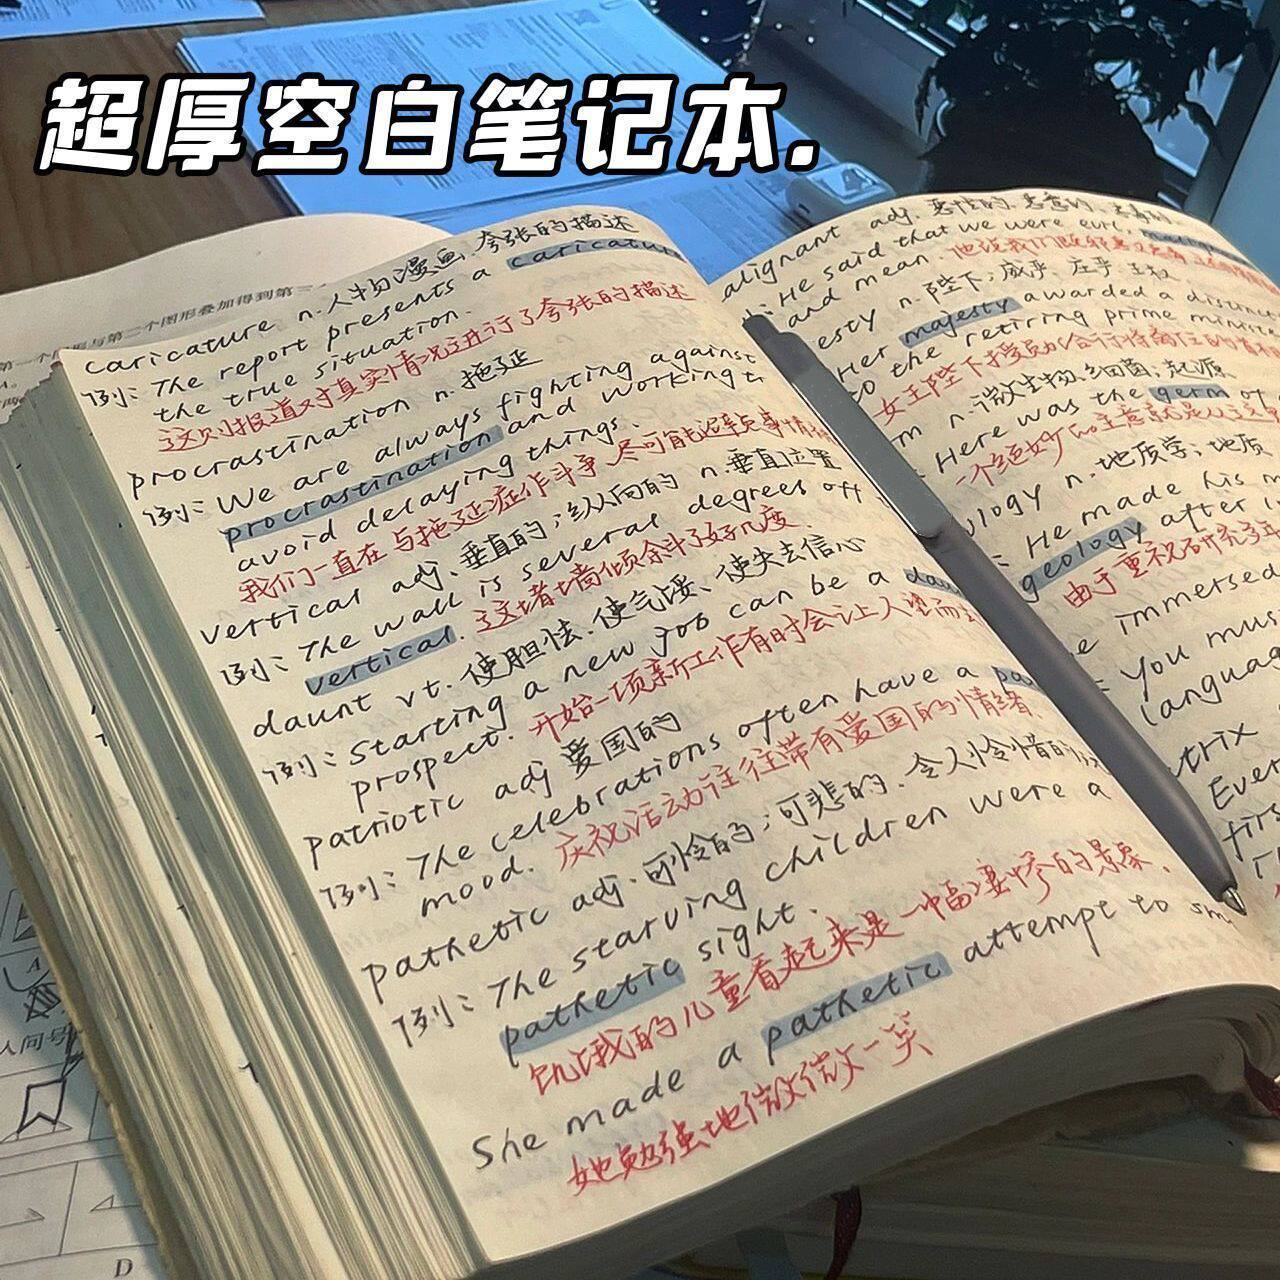 超厚空白笔记本.
第一个图形与第二个图形叠加得到第三
caricature n.人物漫画、夸张的描述
例:The report presents a caricatur
the true situation.
这则报道对真实情况进行了夸张的描述
procrastination n.拖延
例:We are always fighting against
procrastination and working t
avoid delaying things.
我们一直在与拖延症作斗争 尽可能避免事情
vertical adj、垂直的;纵向的 n.垂直位置
例:The wall is several degrees off
vertical. 这堵墙倾斜了好几度.
daunt vt.使胆怯.使气馁、使失去信心
例:Starting a new job can be a dau
prospect. 开始一项新工作有时会让人望而
patriotic adj 爱国的
例:The celebrations often have a pa
mood. 庆祝活动往往带有爱国的情绪.
pathetic adj.可怜的;可悲的.令人怜惜的
例:The starving children were a
pathetic sight.
饥饿的儿童看起来是一幅凄惨的景象.
She made a pathetic attempt to sm
她勉强地微微一笑
alignant adj.恶性的.恶意的、
:He said that we were evil,
and mean. 他说我们
esty n.陛下;威严、庄严 王权
Her majesty awarded a distinct
to the retiring prime minist
女王陛下授员
m n.微生物、细菌;起源
Here was the germ of
一个绝妙的主意就是从这
ology n.地质学;地质
: He made his m
geology after
由于重视研究
e immersed
: You mus
languag
trix
Ever
firs
人问号
A
D